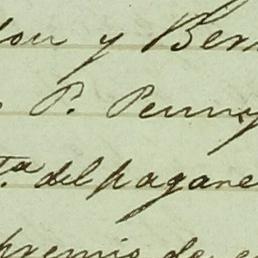 lon y Ber
P. Penny
ta. del pagare
premio de